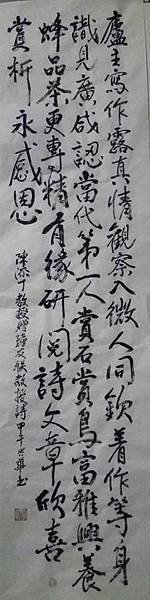 廬主寫作露真情觀察入微人同欽着作等身
識見廣咸認當代第一人賞石賞鳥富雅興養
蜂品茶更專精有緣研閱詩文章欣喜
賞析永感恩
陳添丁教授贈 文 教授詩甲午 華書